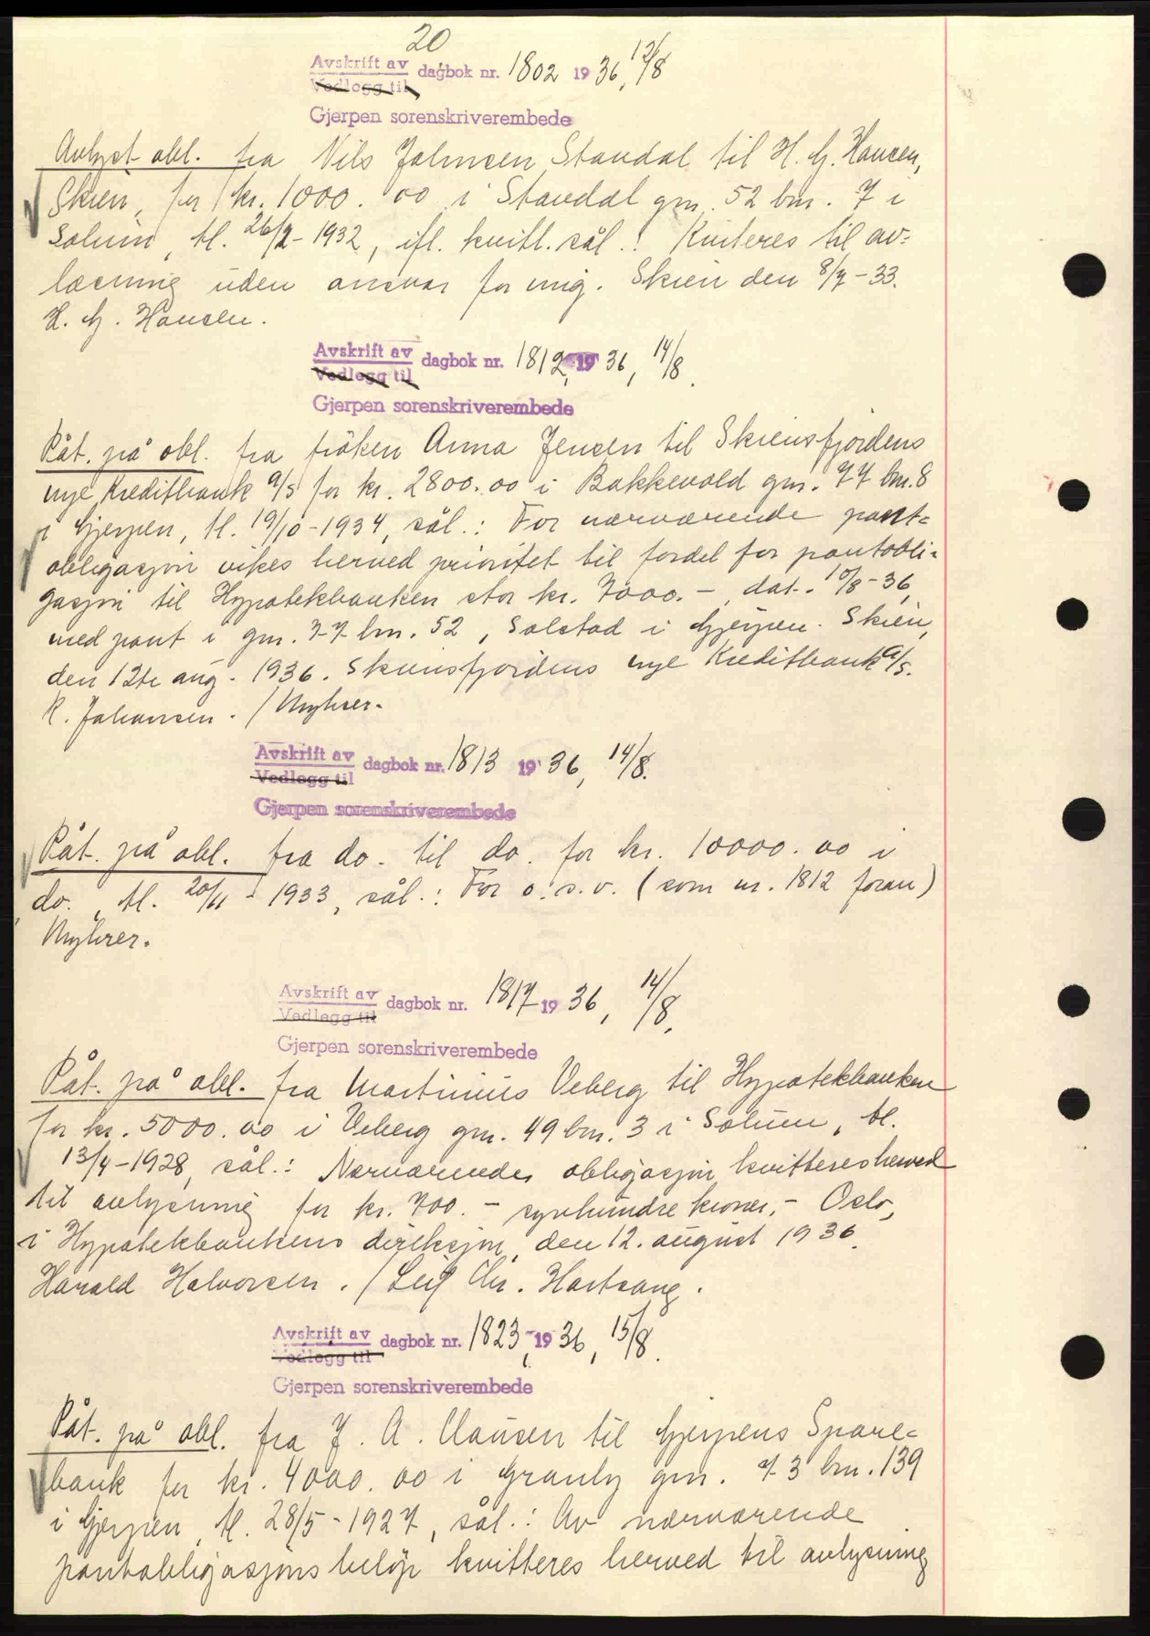 20
Avskrift av dagbok nr. 1802 1936, 12/8
Vedlegg til
Gjerpen sorenskriverembede
Avlyst obl. fra Nils Johnsen Standal til H. G. Hansen,
Skien, for kr. 1000.00 i Standal gnr. 52 bnr. 7 i
Solum, tl. 26/2-1932, ifl. kvitt. sål.: Kviteres til av=
læsning uden ansvar for mig. Skien den 8/7-33.
H. G. Hansen.
Avskrift av dagbok nr. 1812, 1936, 14/8.
Vedlegg til
Gjerpen sorenskriverembede
Påt. på obl. fra fröken Anna Jensen til Skiensfjordens
nye Kreditbank a/s for kr. 2800.00 i Bakkevold gnr. 77 bnr. 8
i Gjerpen, tl. 19/10-1934, sål.: For nærværende pant=
obligasjon vikes herved prioritet til fordel for pantobli=
gasjon til Hypotekbanken stor kr. 7000.-, dat. 10/8-36,
med pant i gnr. 77 bnr. 52, Solstad i Gjerpen. Skien,
den 12te aug. 1936. Skiensfjordens nye Kreditbank a/s.
R. Johansen. / Myhrer.
Avskrift av dagbok nr. 1813 1936, 14/8.
Vedlegg til
Gjerpen sorenskriverembede
Påt. på obl. fra do. til do. for kr. 10000.00 i
do., tl. 20/11-1933, sål.: For o.s.v. (som nr. 1812 foran)
Myhrer.
Avskrift av dagbok nr. 1817 1936, 14/8.
Vedlegg til
Gjerpen sorenskriverembede
Påt. på obl. fra Martinius Veberg til Hypotekbanken
for kr. 5000.00 i Veberg gnr. 49 bnr. 3 i Solum, tl.
13/4-1928, sål.: Nærværende obligasjon kvitteres herved
til avlysning for kr. 700.- syvhundre kroner.- Oslo,
i Hypotekbankens direksjon, den 12. august 1936.
Harald Halvorsen. / Leif Chr. Hartsang.
Avskrift av dagbok nr. 1823, 1936, 15/8.
Vedlegg til
Gjerpen sorenskriverembede
Påt. på obl. fra J. A. Clausen til Gjerpens Spare=
bank for kr. 4000.00 i Granly gnr. 73 bnr. 139
i Gjerpen, tl. 28/5-1927, sål.: Av nærværende
pantobligasjons belöp kvitteres herved til avlysning